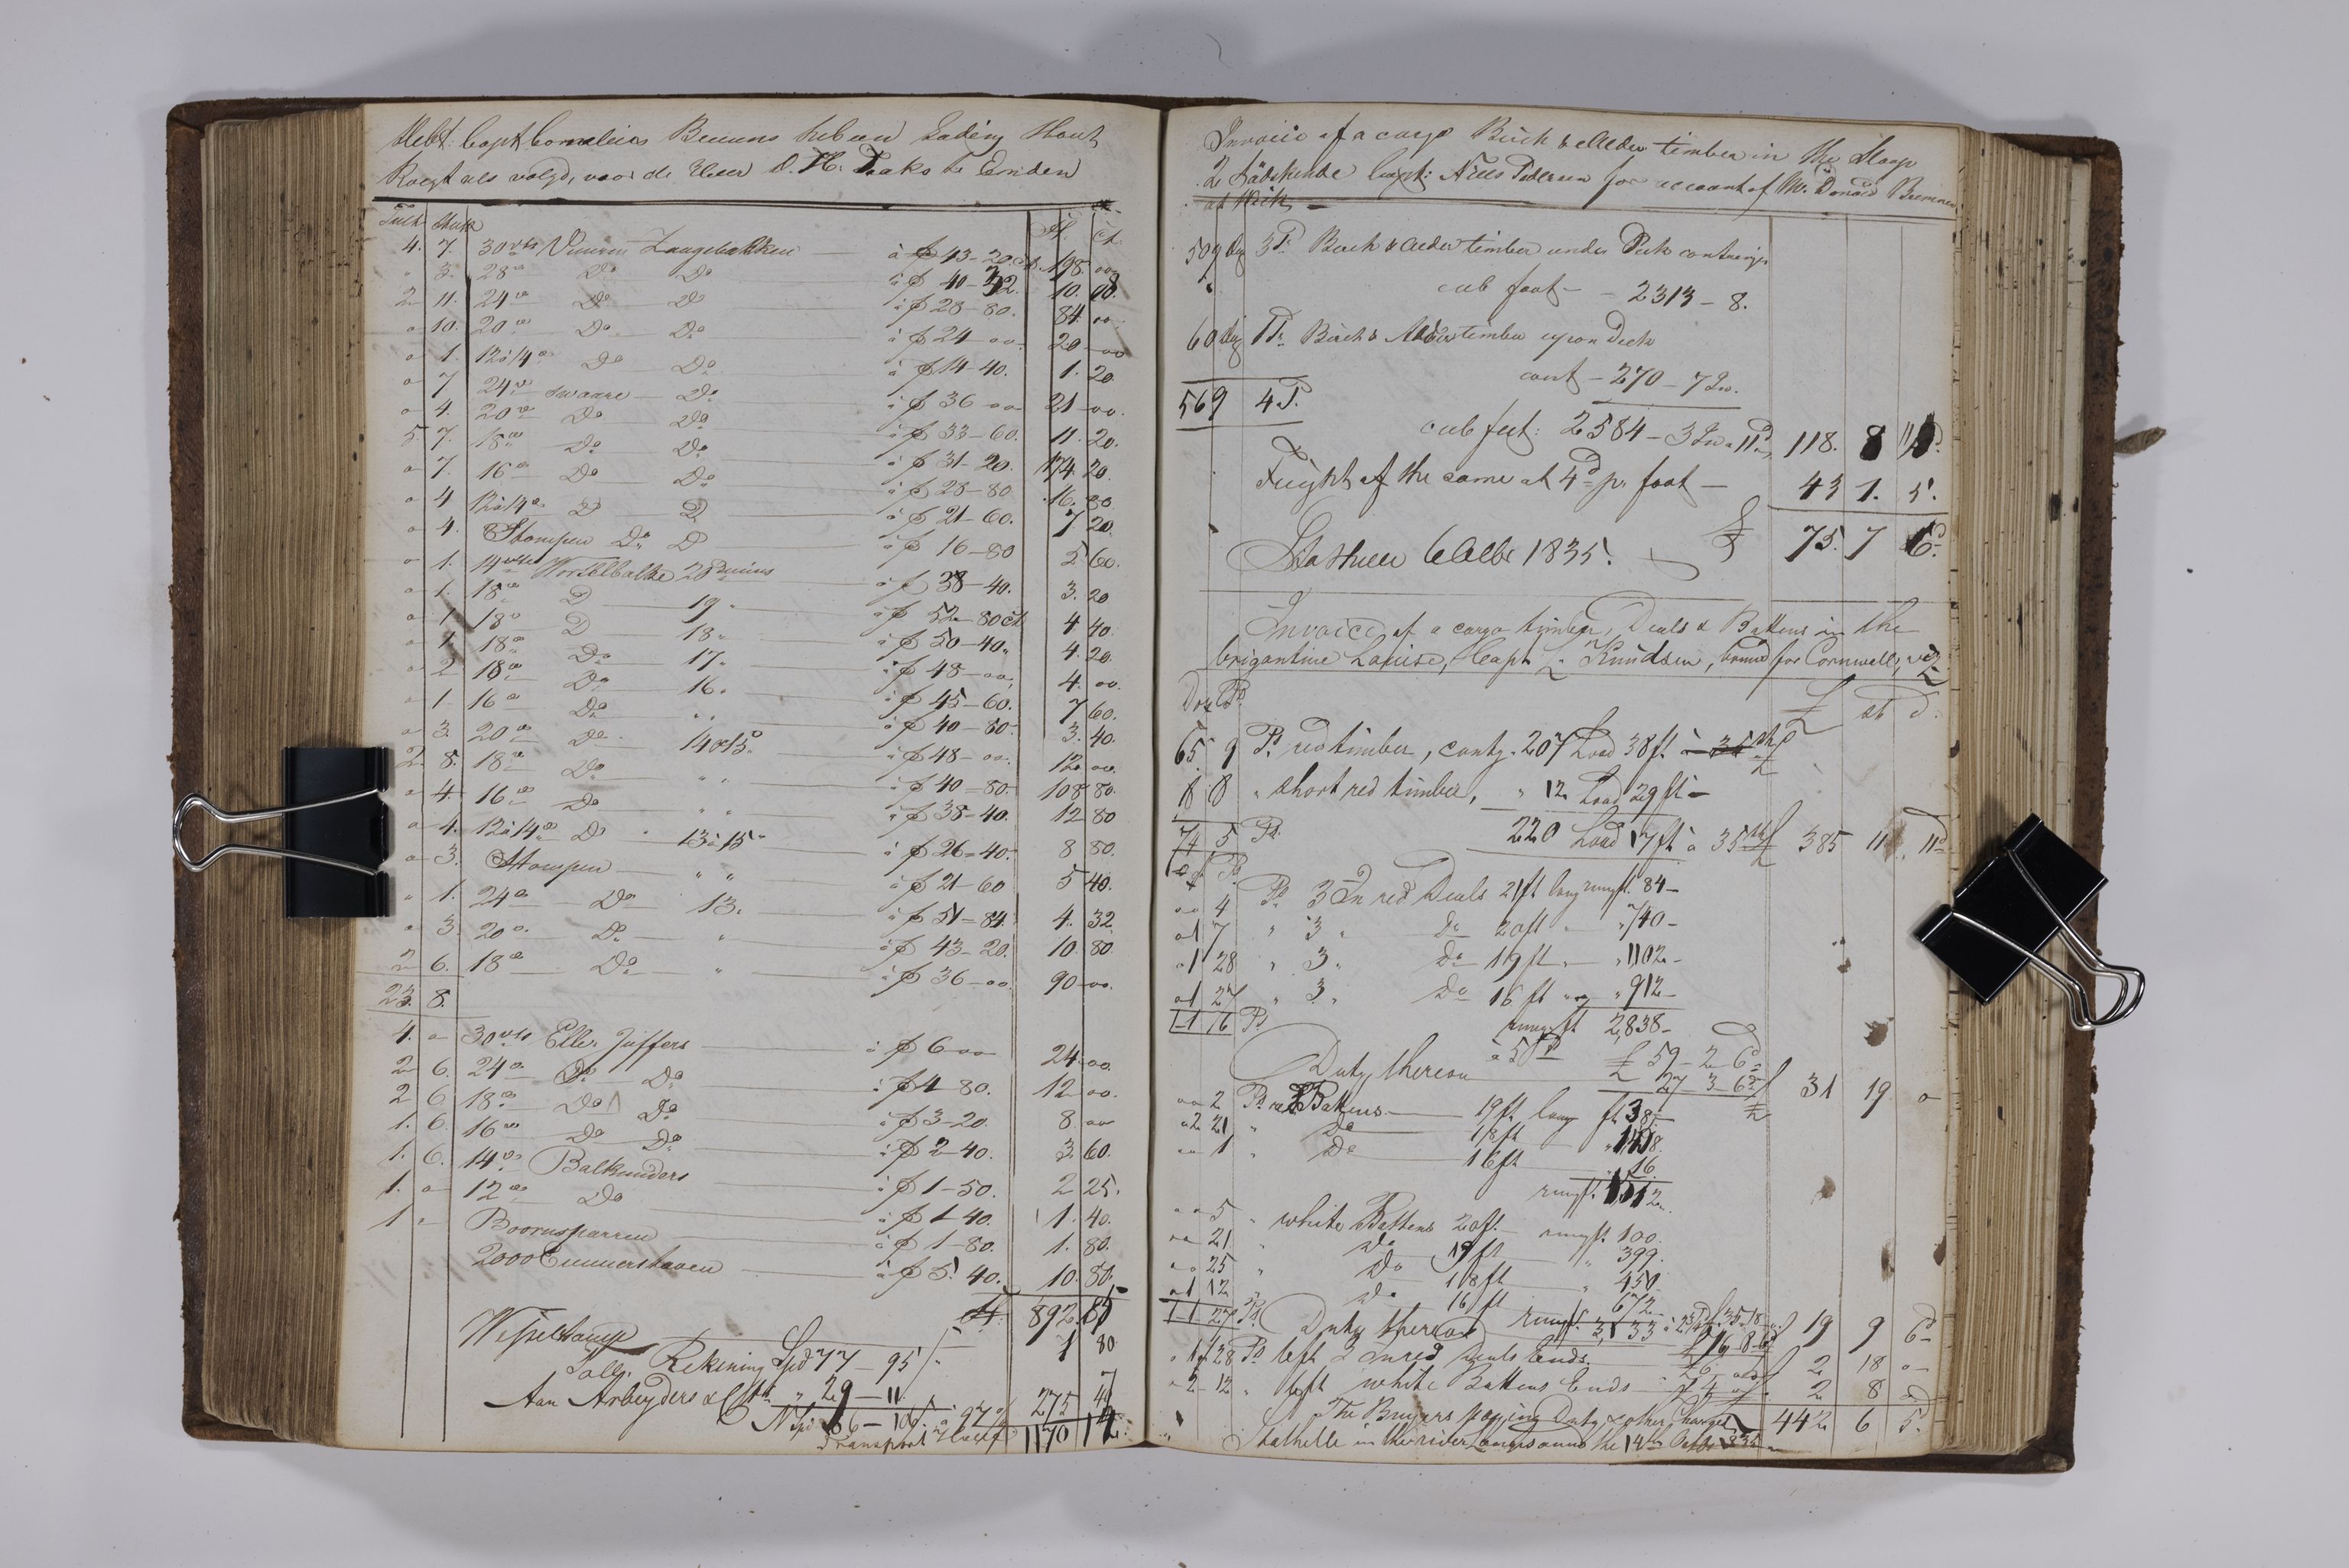 Capt Cornelius Beuns Lading Hout
als volgd, voor de Heer D. H. te Emden
Stuk
f Ct
4. 7. 30 vts Vuuren Zaagebalken à f 43-20 ct 198. 00
" 3. 28 " Do Do à f 40-32. 10. 08.
2 11. 24 " Do Do à f 28-80. 84. 00.
" 10. 20 " Do Do à f 24-00. 20-00
" 1. 12à14 " Do Do à f 14-40. 1. 20.
" 7 24 " swaare Do à f 36-00 21-00.
" 4. 20 " Do Do à f 33-60. 11. 20.
5. 7. 18 " Do Do à f 31-20. 174. 20
" 7. 16 " Do Do à f 28-80 16. 80
" 4 12à14 " D D à f 21-60. 7 20.
" 4. Stompen Do D à f 16-80 5 60.
" 1. 14 vts Worselbalke 20 à f 38-40. 3. 20
" 1. 18 " D 19 " à f 52-80 ct 4 40.
" 1 18 " D 18 " à f 50-40. 4. 20.
" 1. 18 " Do 17 " à f 48-00. 4. 00.
" 2 18 " Do 16 " à f 45-60. 7 60.
" 1. 16 " Do " " à f 40-80- 3. 40.
" 3. 20 " Do 14à15 " à f 48-00. 12. 00.
2 8. 18 " Do " " à f 40-80- 108 80.
" 4. 16 " Do " " à f 38-40. 12 80
" 4. 12à14 " D 13à15 " à f 26-40. 8 80.
" 3. Stompen " " à f 21-60 5 40.
" 1. 24 " Do 13. à f 51-84. 4. 32
" 3. 20 " Do " à f 43-20. 10. 80.
2 6. 18 " Do " à f 36-00. 90-00.
23. 8.
4. " 30 vts Elle. Juffers à f 6-00 24-00.
2 6. 24 " Do Do à f 4-80. 12-00.
2 6 18 " Do Do à f 3-20. 8. 00
1. 6. 16 " Do Do à f 2-40. 3. 60.
1. 6. 14 " Balkunders à f 1-50. 2 25.
1. " 12 " Do à f 1-40. 1. 40.
1 " Boomsparren à f 1-80. 1. 80.
2000 Emmerstaven à f 5. 40. 10. 80.
f 892. 85
1 80
Rekening Spd 77-95
Aan Arbeyders & 29-11.
à 97 275 47
Transport 1170 12.
Invoice of a cargo Birch & Alder timber in the Sloop
2 Södskende Capt: Niels Pedersen for account of Mr Donald Bremner
at Wick
509 3 Ps Birch & Alder timber under Deck containing
cub foot - 2313-8.
60 1 Ps Birch & Alder timber upon Deck
cont - 270-7 In.
569 4 P.
cub feet: 2584-3 In à 11d 118. 8 11d.
Freight of the same at 4d pr foot 43 1. 5.
Stathelle 6 Octbr 1835. £ 75. 7 6d.
Invoice of a cargo timber, Deals & Battens in the
brigantine Louise, Capt L. Knudsen, bound for Cornwell, viz
Doz Ps £ st d.
65. 9 Ps red timber, contg. 207 Load 38 ft à 35 sh
8 8 " short red timber, " 12 Load 29 ft -
74 5 Ps 220 Load 17 ft à 35 sh £ 385 11. 11d
" " 4 Ps 3 In red Deals 21 ft long rung ft. 84-
" 1 7 " 3 " Do 20 ft " " 740-
" 1 28 " 3 " Do 19 ft " " 1102-
" 1 27 " 3 " Do 16 ft " " 912-
1-1 76 Ps rung ft 2,838-
à 5d £ 59-2-6d
Duty thereon 27 3-6d £ 31 19 "
" " 2 Ps red Battens 19 ft long ft 38.
" 2 21 " Do 18 ft " 1458.
" " 1 " Do 16 ft " 16
rung ft. 1512.
" " 5 " white Battens 20 ft rung ft. 100.
" " 21 " Do 19 ft " 399.
" " 25 " Do 18 ft " 450
" 1 12 " Do 16 ft " 672
Duty thereon rung ft. 3,133 £ 16-8-6d 19 9 6d
" 1 28 Ps left 3 In red Deals Ends. 2 18 "
" 2-12 " left white Battens Ends 2 8 "
The Buyers paying Duty & other charges 442 6 5.
Stathelle in the river Langesound the 14th Octbr 1835